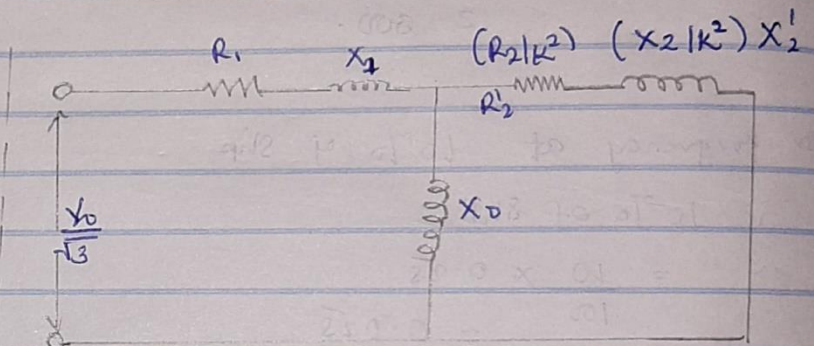 R₁ X₁ (R₂/K²) (X₂/K²) X₂'
R₂'
X₀
V₀
√3